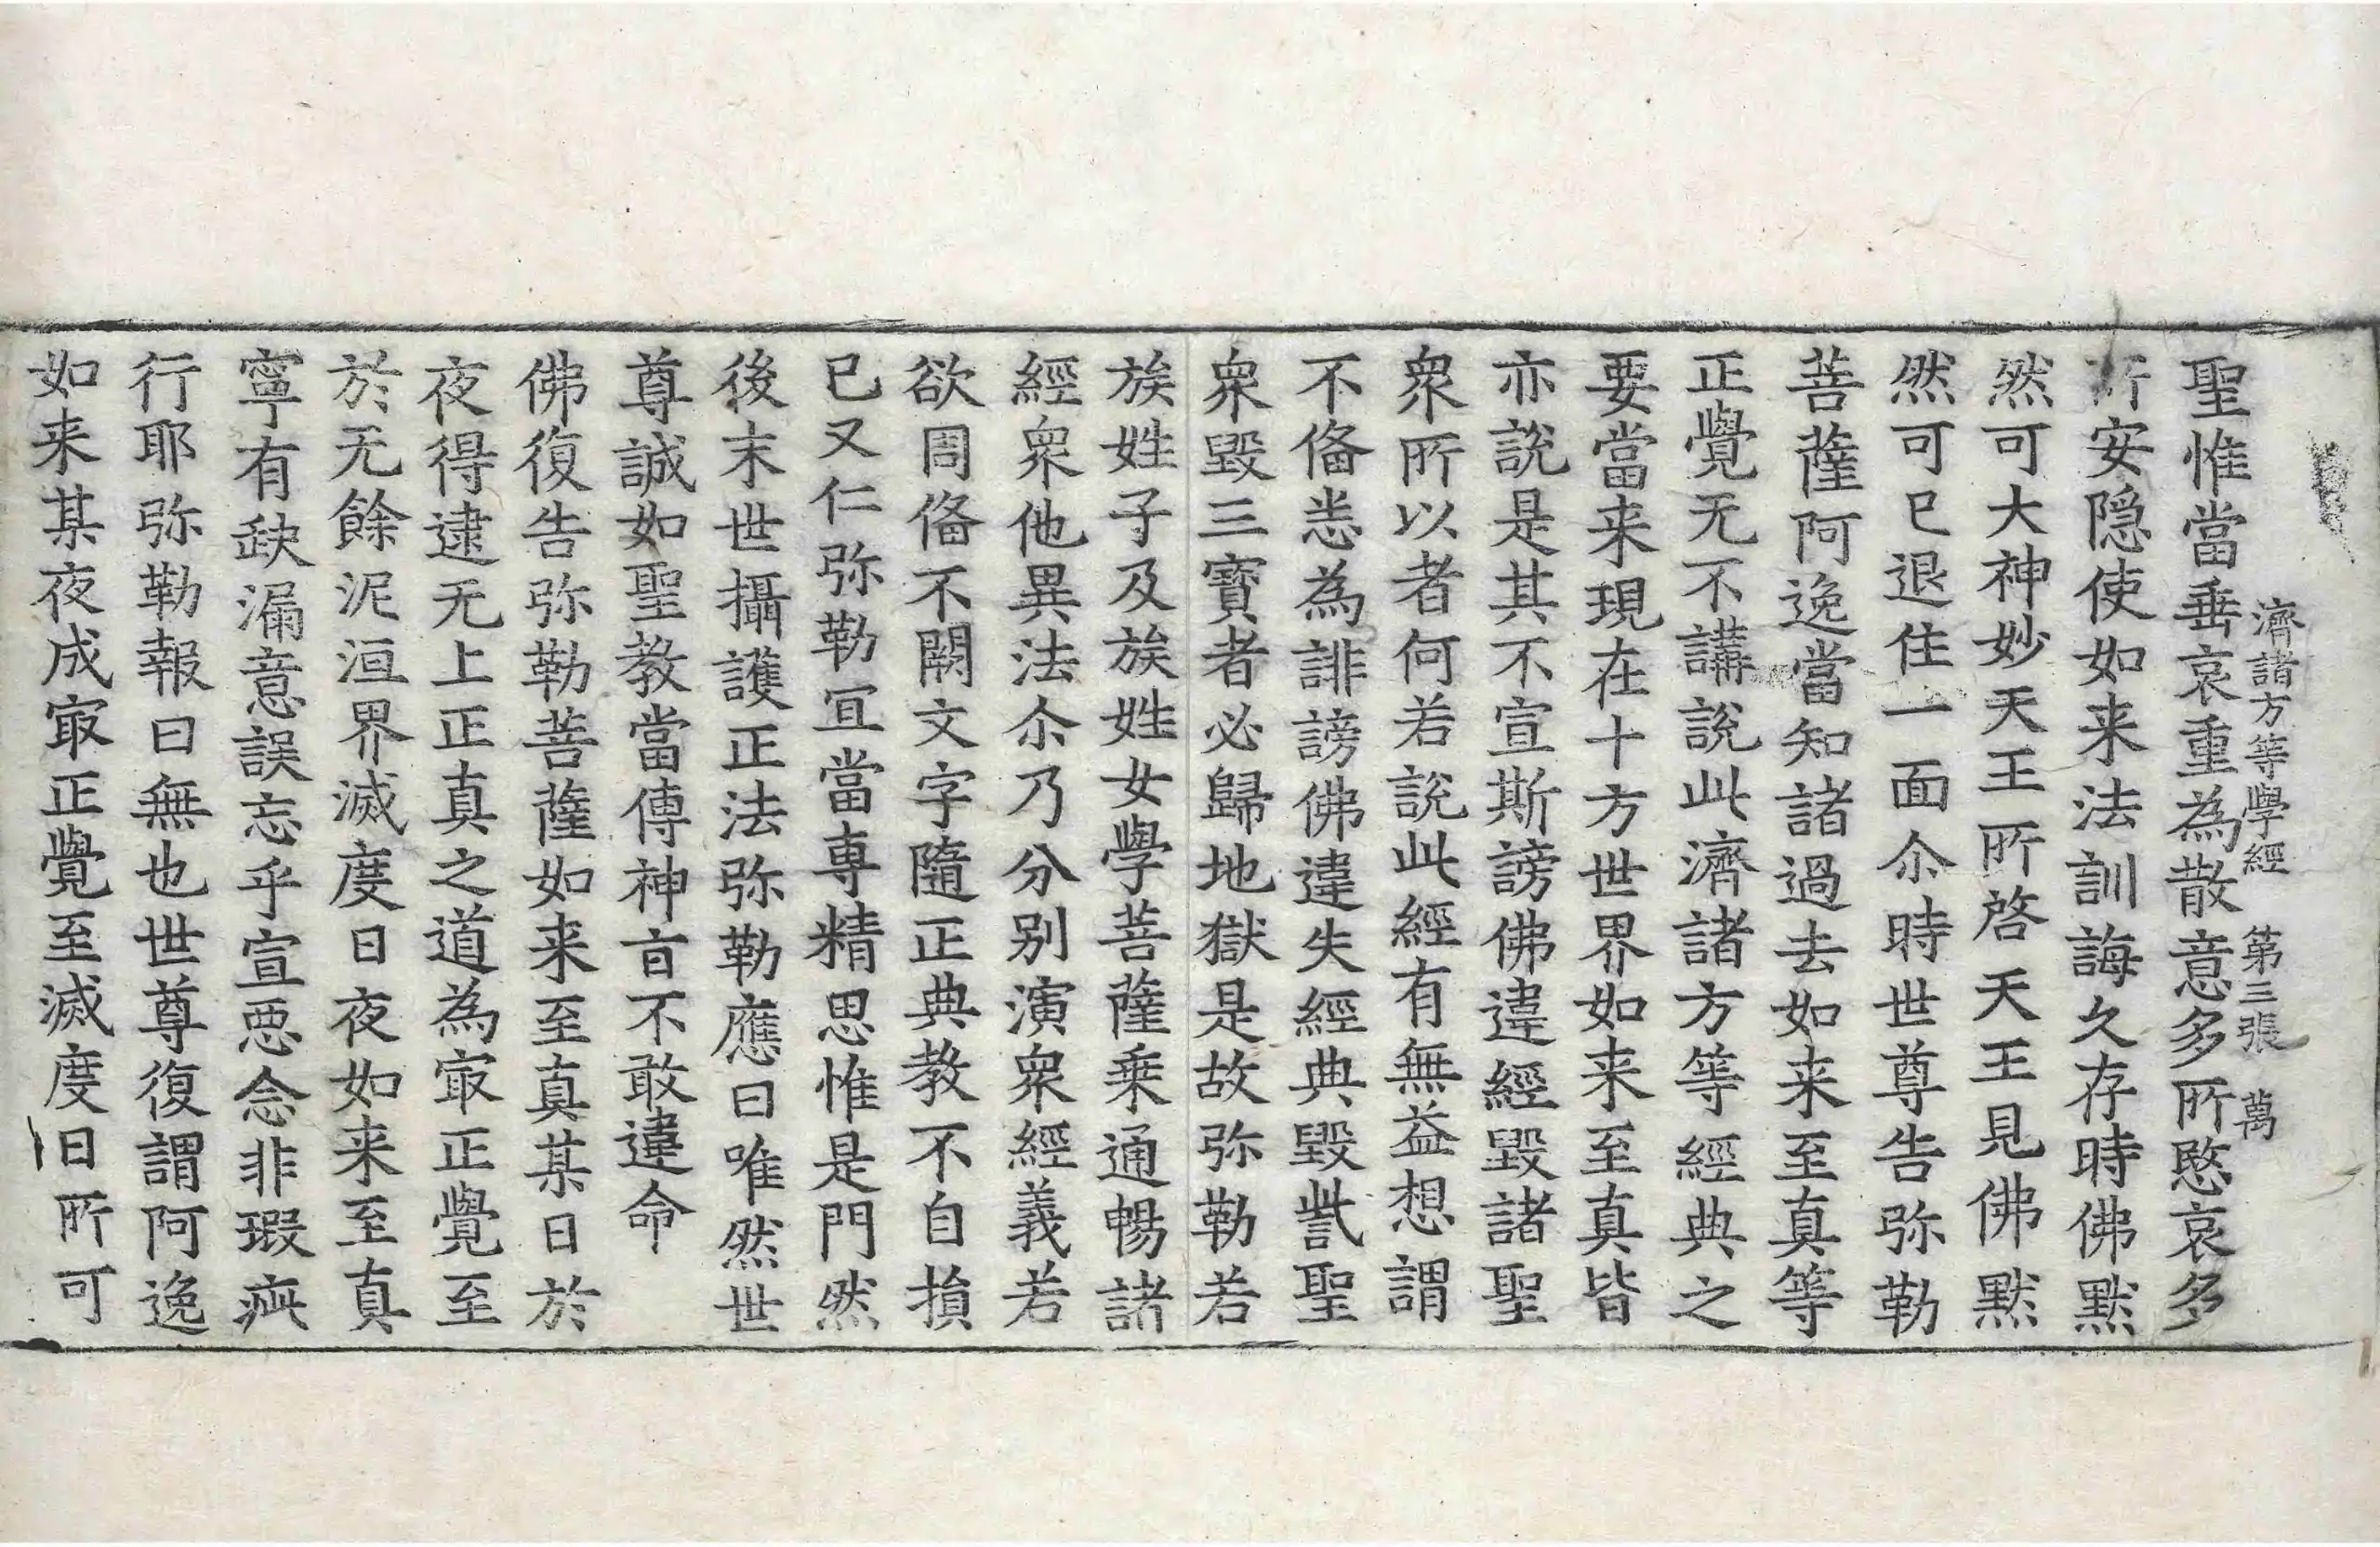 濟諸方等學經 第三張 萬
聖惟當垂哀重為散意多所愍哀多
所安隱使如来法訓誨久存時佛黙
然可大神妙天王所啓天王見佛黙
然可已退住一面尒時世尊告弥勒
菩薩阿逸當知諸過去如来至真等
正覺无不講說此濟諸方等經典之
要當来現在十方世界如来至真皆
亦說是其不宣斯謗佛違經毀諸聖
衆所以者何若說此經有無益想謂
不俻恙為誹謗佛違失經典毀呰聖
衆毀三寶者必歸地獄是故弥勒若
族姓子及族姓女學菩薩乗通暢諸
經衆他異法尒乃分别演衆經義若
欲周俻不闕文字隨正典教不自損
已又仁弥勒冝當専精思惟是門然
後末世攝護正法弥勒應曰唯然世
尊誠如聖教當傳神㫖不敢違命
佛復告弥勒菩薩如来至真某日於
夜得逮无上正真之道為㝡正覺至
於无餘泥洹界滅度日夜如来至真
寧有缺漏意誤忘乎宣惡念非瑕疵
行耶弥勒報曰無也世尊復謂阿逸
如来某夜成㝡正覺至滅度日所可